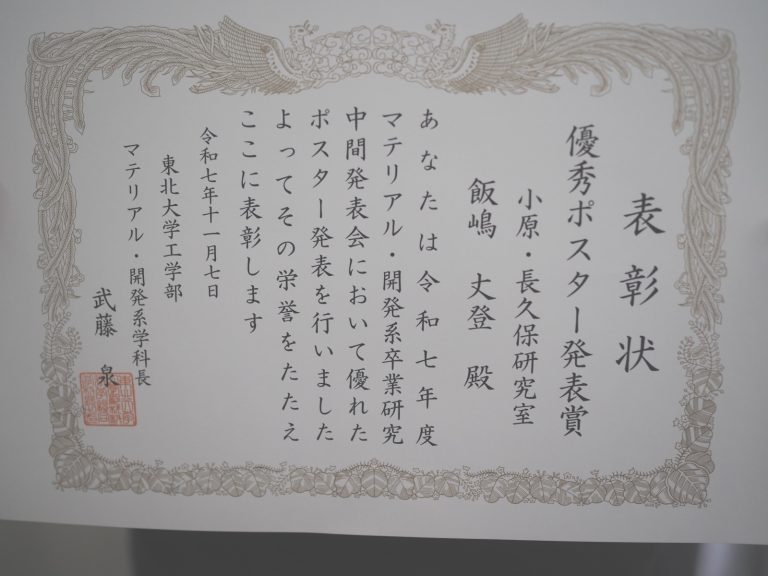 表彰状
優秀ポスター発表賞
小原・長久保研究室
飯嶋 丈登 殿
あなたは令和七年度
マテリアル・開発系卒業研究
中間発表会において優れた
ポスター発表を行いました
よってその栄誉をたたえ
ここに表彰します
令和七年十一月七日
東北大学工学部
マテリアル・開発系学科長
武藤 泉